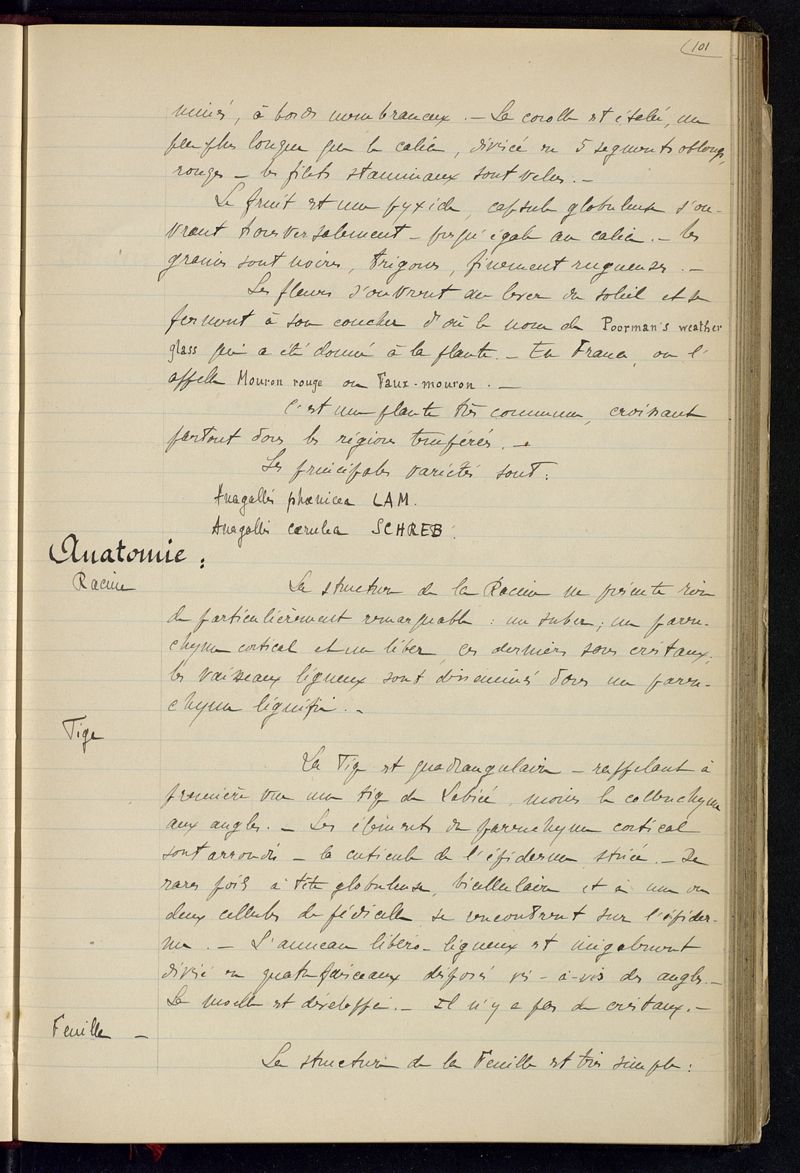 101
minés, à bords membraneux. — La corolle est étalée, un
peu plus longue que le calice, divisée en 5 segments oblongs,
rouges — les filets staminaux sont velus. —
Le fruit est une pyxide, capsule globuleuse s'ou-
vrant transversalement — presqu'égale au calice. — les
graines sont noires, trigones, finement rugueuses. —
Les fleurs s'ouvrent au lever du soleil et se
ferment à son coucher d'où le nom de Poorman's weather
glass qui a été donné à la plante. — En France, on l'
appelle Mouron rouge ou Faux-mouron. —
C'est une plante très commune, croissant
partout dans les régions tempérées. —
Les principales variétés sont:
Anagallis phœnicea LAM.
Anagallis cærulea SCHREB.
Anatomie:
Racine
La structure de la Racine ne présente rien
de particulièrement remarquable: un suber; un paren-
chyme cortical et un liber, ces derniers sans cristaux;
les vaisseaux ligneux sont disséminés dans un paren-
chyme lignifié. —
Tige
La Tige est quadrangulaire — rappelant à
première vue une tige de Labiée, moins le collenchyme
aux angles. — Les éléments du parenchyme cortical
sont arrondis — la cuticule de l'épiderme striée. — De
rares poils à tête globuleuse, bicellulaire et à une ou
deux cellules de pédicelle se rencontrent sur l'épider-
me. — L'anneau libéro-ligneux est inégalement
divisé en quatre faisceaux disposés vis-à-vis des angles. —
La moelle est développée. — Il n'y a pas de cristaux. —
Feuille —
La structure de la Feuille est très simple: